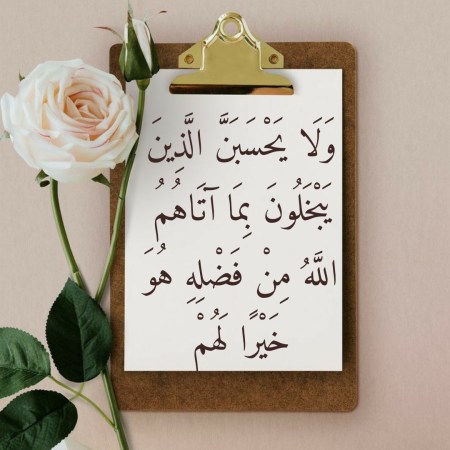 وَلَا يَحْسَبَنَّ الَّذِينَ
يَبْخَلُونَ بِمَا آتَاهُمُ
اللَّهُ مِنْ فَضْلِهِ هُوَ
خَيْرًا لَهُمْ